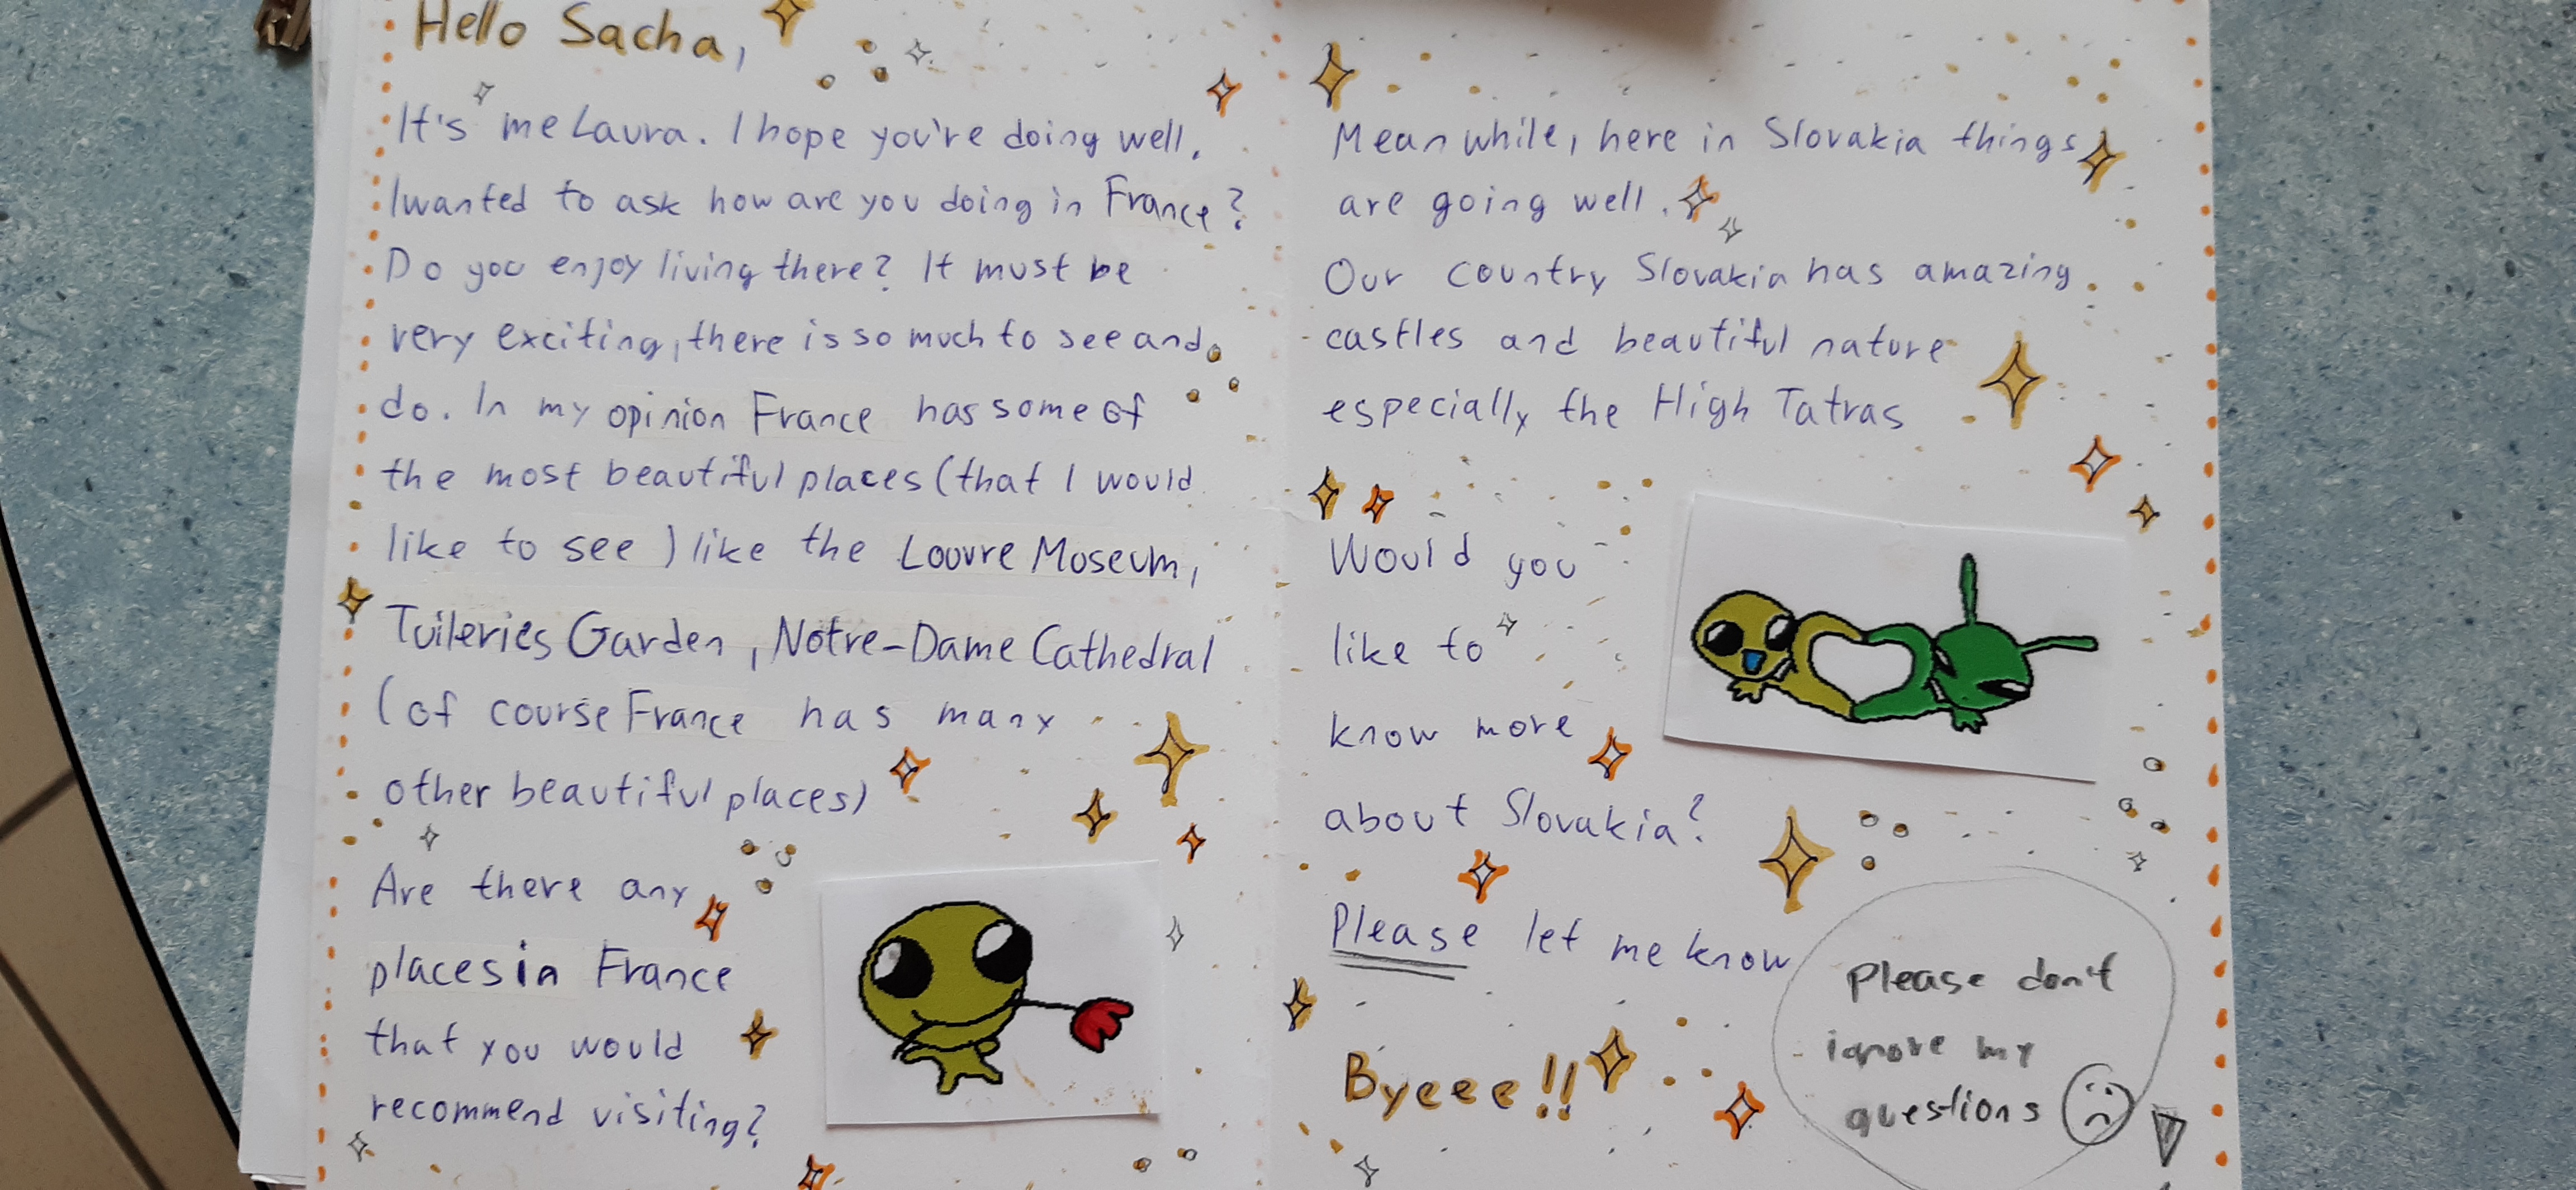 Hello Sacha,
It's me Laura. I hope you're doing well.
I wanted to ask how are you doing in France?
Do you enjoy living there? It must be
very exciting, there is so much to see and
do. In my opinion France has some of
the most beautiful places (that I would
like to see) like the Louvre Museum,
Tuileries Garden, Notre-Dame Cathedral
(of course France has many
other beautiful places)
Are there any
places in France
that you would
recommend visiting?
Meanwhile, here in Slovakia things
are going well.
Our country Slovakia has amazing
castles and beautiful nature
especially the High Tatras
Would you
like to
know more
about Slovakia?
Please let me know
Byeee!!
please don't
ignore my
questions